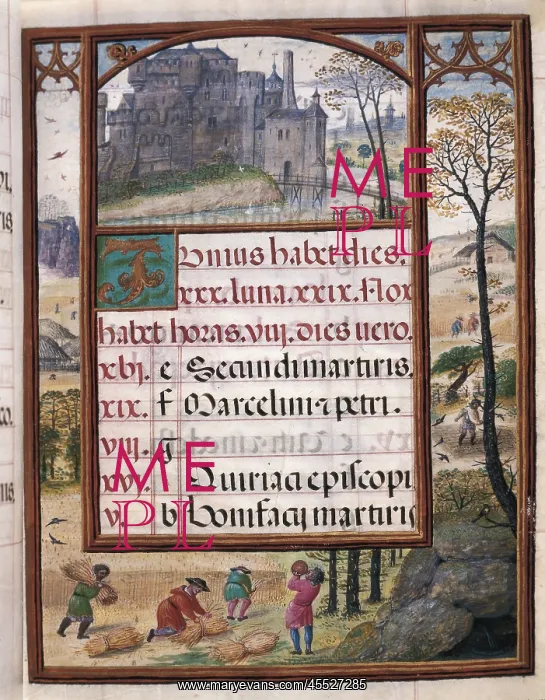 Iunius habet dies.
xxx. luna. xxix. Nox
habet horas. viij. dies uero.
xbj. e Secundi martiris.
xix. f Marcelini ⁊ petri.
viij. g
xvj. Quiriaci episcopi
v b Bonifacij martiris
ME
PL
ME
PL
www.maryevans.com/45527285